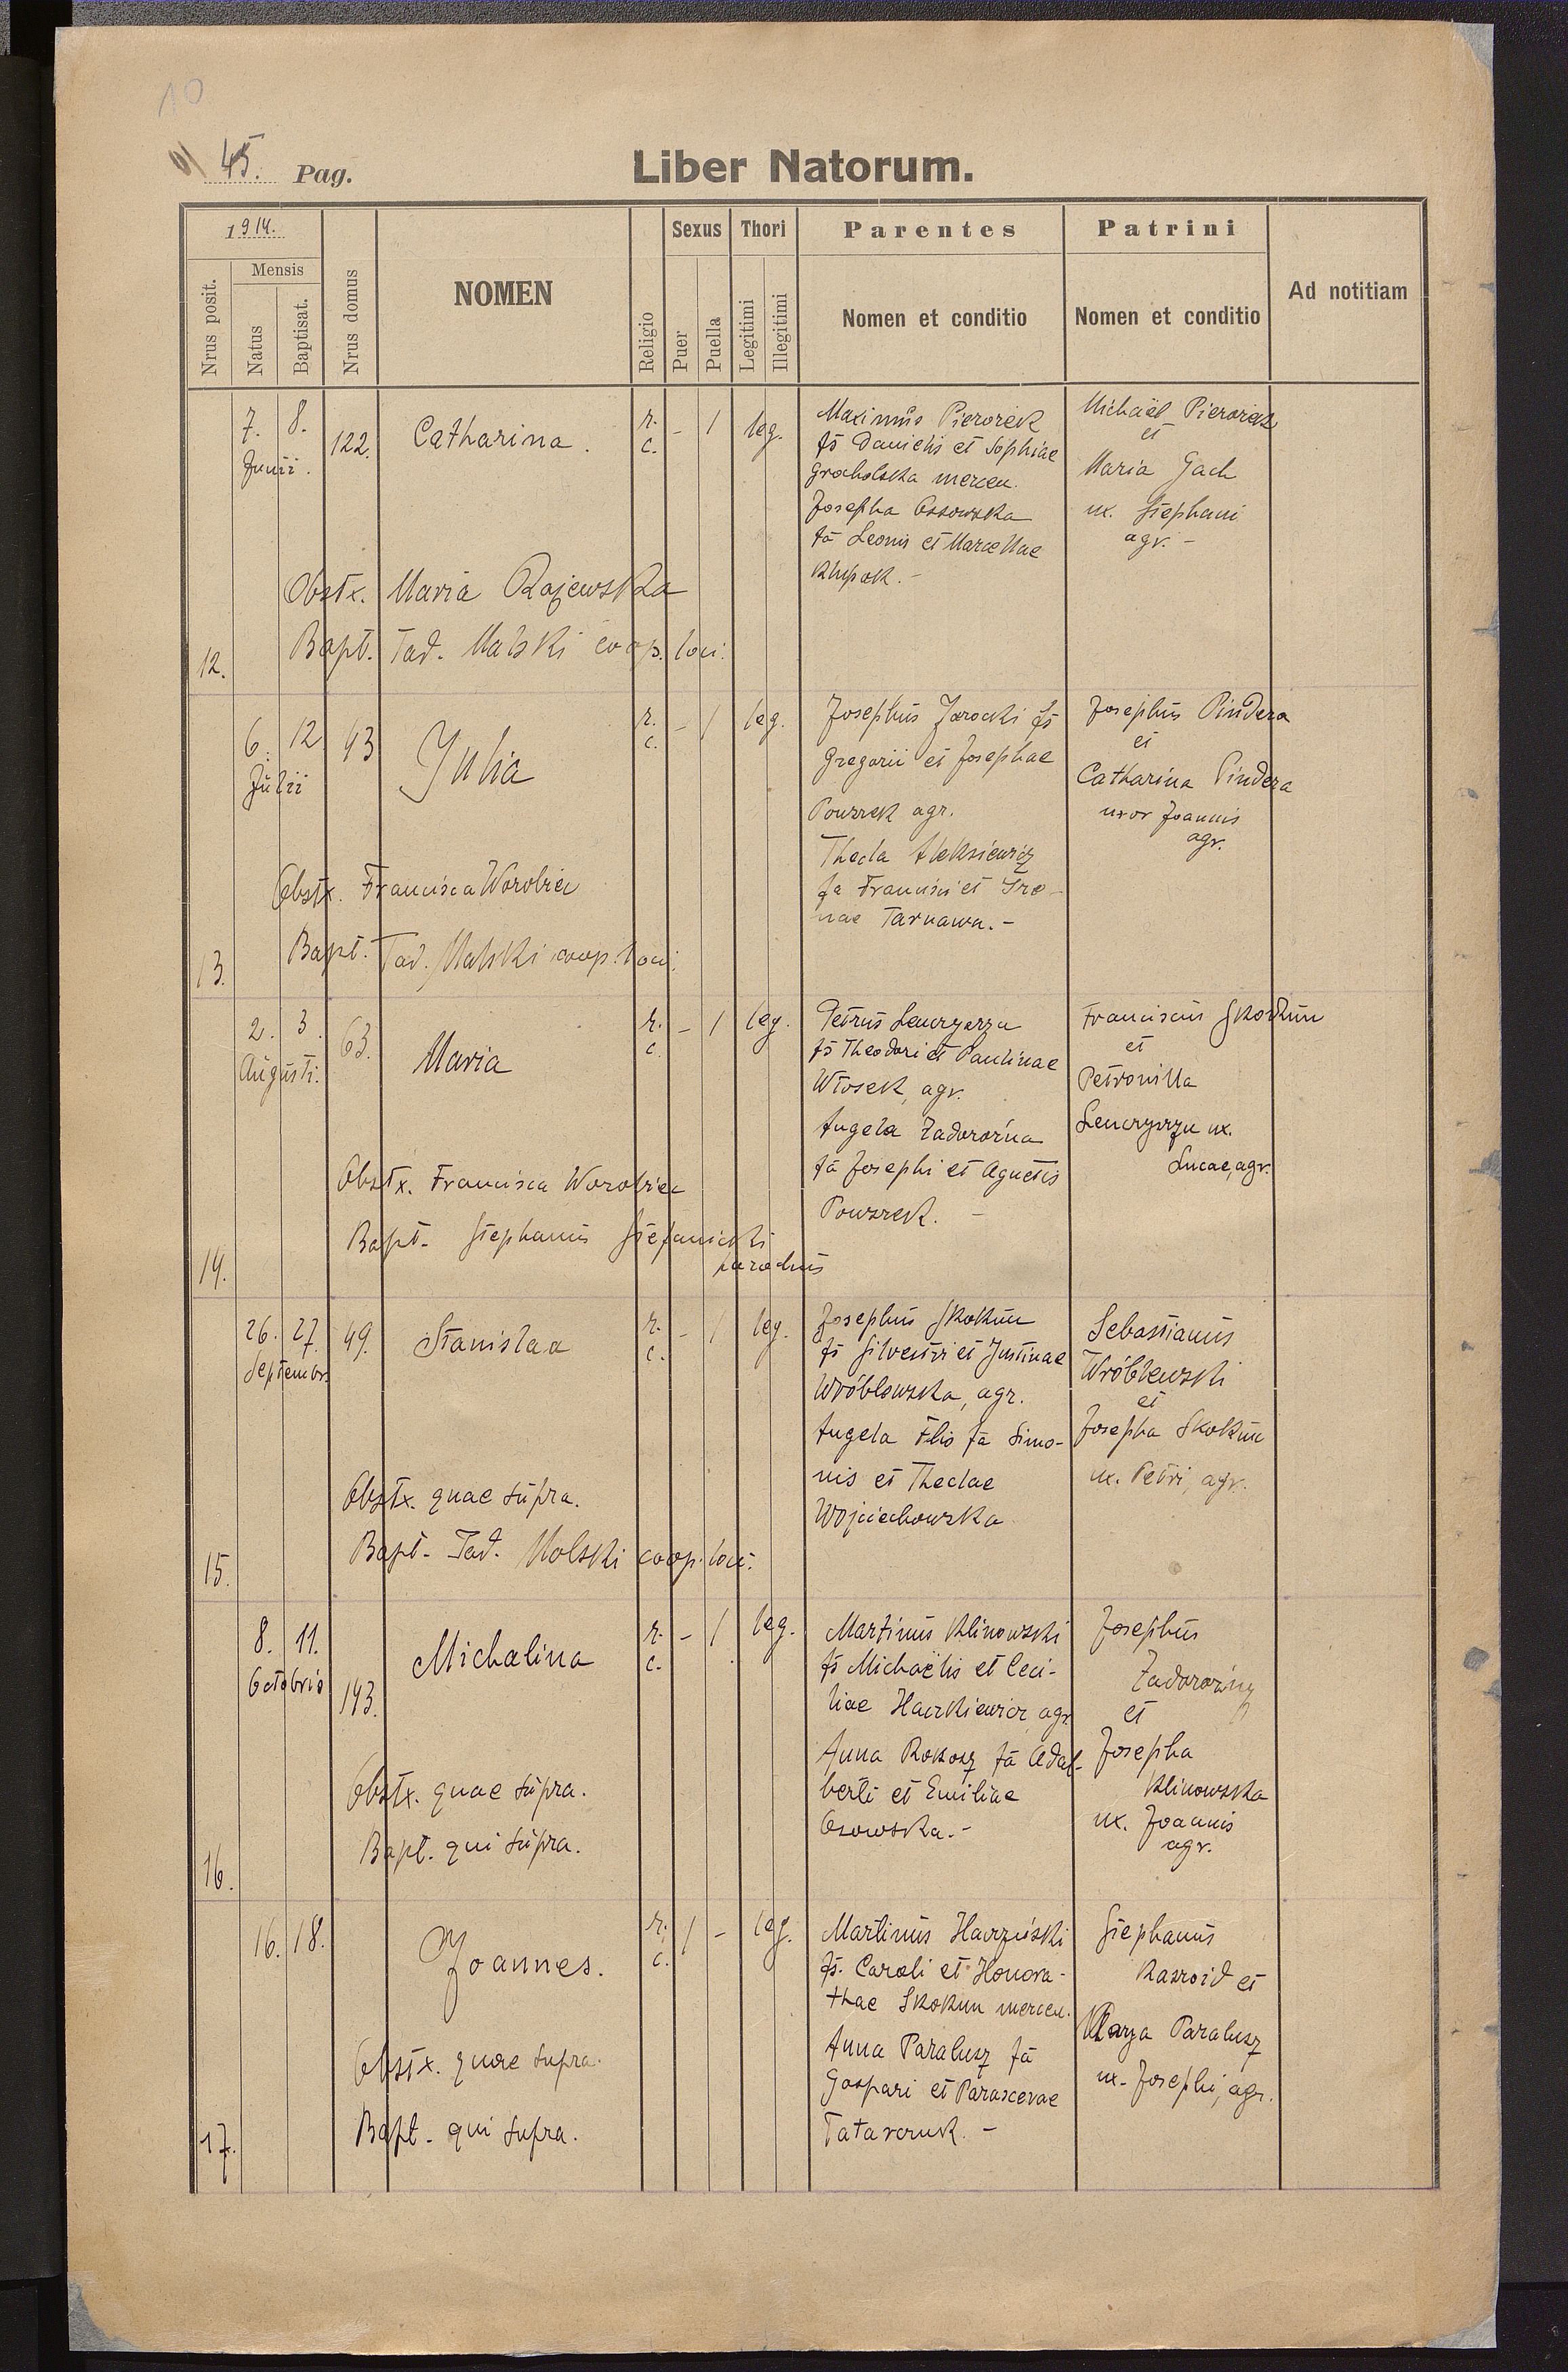 10
45. Pag.
Liber Natorum.
1914.
Nrus posit.
Mensis
Natus
Baptisat.
Nrus domus
NOMEN
Religio
Sexus
Puer
Puella
Thori
Legitimi
Illegitimi
Parentes
Nomen et conditio
Patrini
Nomen et conditio
Ad notitiam
12.
7. 8.
Junii.
122.
Catharina.
r.
c.
- 1
leg.
Maximus
fs Danielis et Sophiae
Grocholska mercen.
Josepha Ossowska
fa Leonis et Marcellae
Michaël
et
Maria Gach
ux. Stephani
agr. -
Obstx. Maria Rajewska
Bapt. Tad. Malski coop. loci.
13.
6. 12
Julii
43
Julia
r.
c.
- 1
leg.
Josephus Jarocki fs
Gregorii et Josephae
Powzek agr.
Thecla Aleksiewicz
fa Francisci et Ire-
nae Tarnawa. -
Josephus Pindera
et
Catharina Pindera
uxor Joannis
agr.
Obstx. Francisca Worobiec
Bapt. Tad. Malski coop. loci.
14.
2. 3.
Augusti.
63.
Maria
r.
c.
- 1
leg.
Petrus
fs Theodori et Paulinae
Włosek, agr.
Angela Zadorożna
fa Josephi et Agnetis
Powzek. -
Franciscus Skokun
et
Petronilla
ux.
Lucae, agr.
Obstx. Francisca Worobiec
Bapt. Stephanus Stefanicki
parochus
15.
26. 27.
Septembr.
49.
Stanislaa
r.
c.
- 1
leg.
Josephus Skokun
fs Silvestri et Justinae
Wróblowska, agr.
Angela Flis fa Simo-
nis et Theclae
Wojciechowska
Sebastianus
Wróblewski
et
Josepha Skokun
ux. Petri, agr.
Obstx. quae supra.
Bapt. Tad. Malski coop. loci.
16.
8. 11.
Octobris
143.
Michalina
r.
c.
- 1
leg.
Martinus Klinowski
fs Michaëlis et Ceci-
liae Haczkiewicz, agr.
Anna Rokosz fa Adal-
berti et Emiliae
Osowska. -
Josephus
Zadorożny
et
Josepha
Klinowska
ux. Joannis
agr.
Obstx. quae supra.
Bapt. qui supra.
17.
16. 18.
Joannes.
r.
c.
1 -
leg.
Martinus
fs. Caroli et Honora-
thae Skokun mercen.
Anna Paralusz fa
Gaspari et Parascevae
Tatarczuk. -
Stephanus
et
Marya Paralusz
ux. Josephi, agr.
Obstx. quae supra.
Bapt. qui supra.